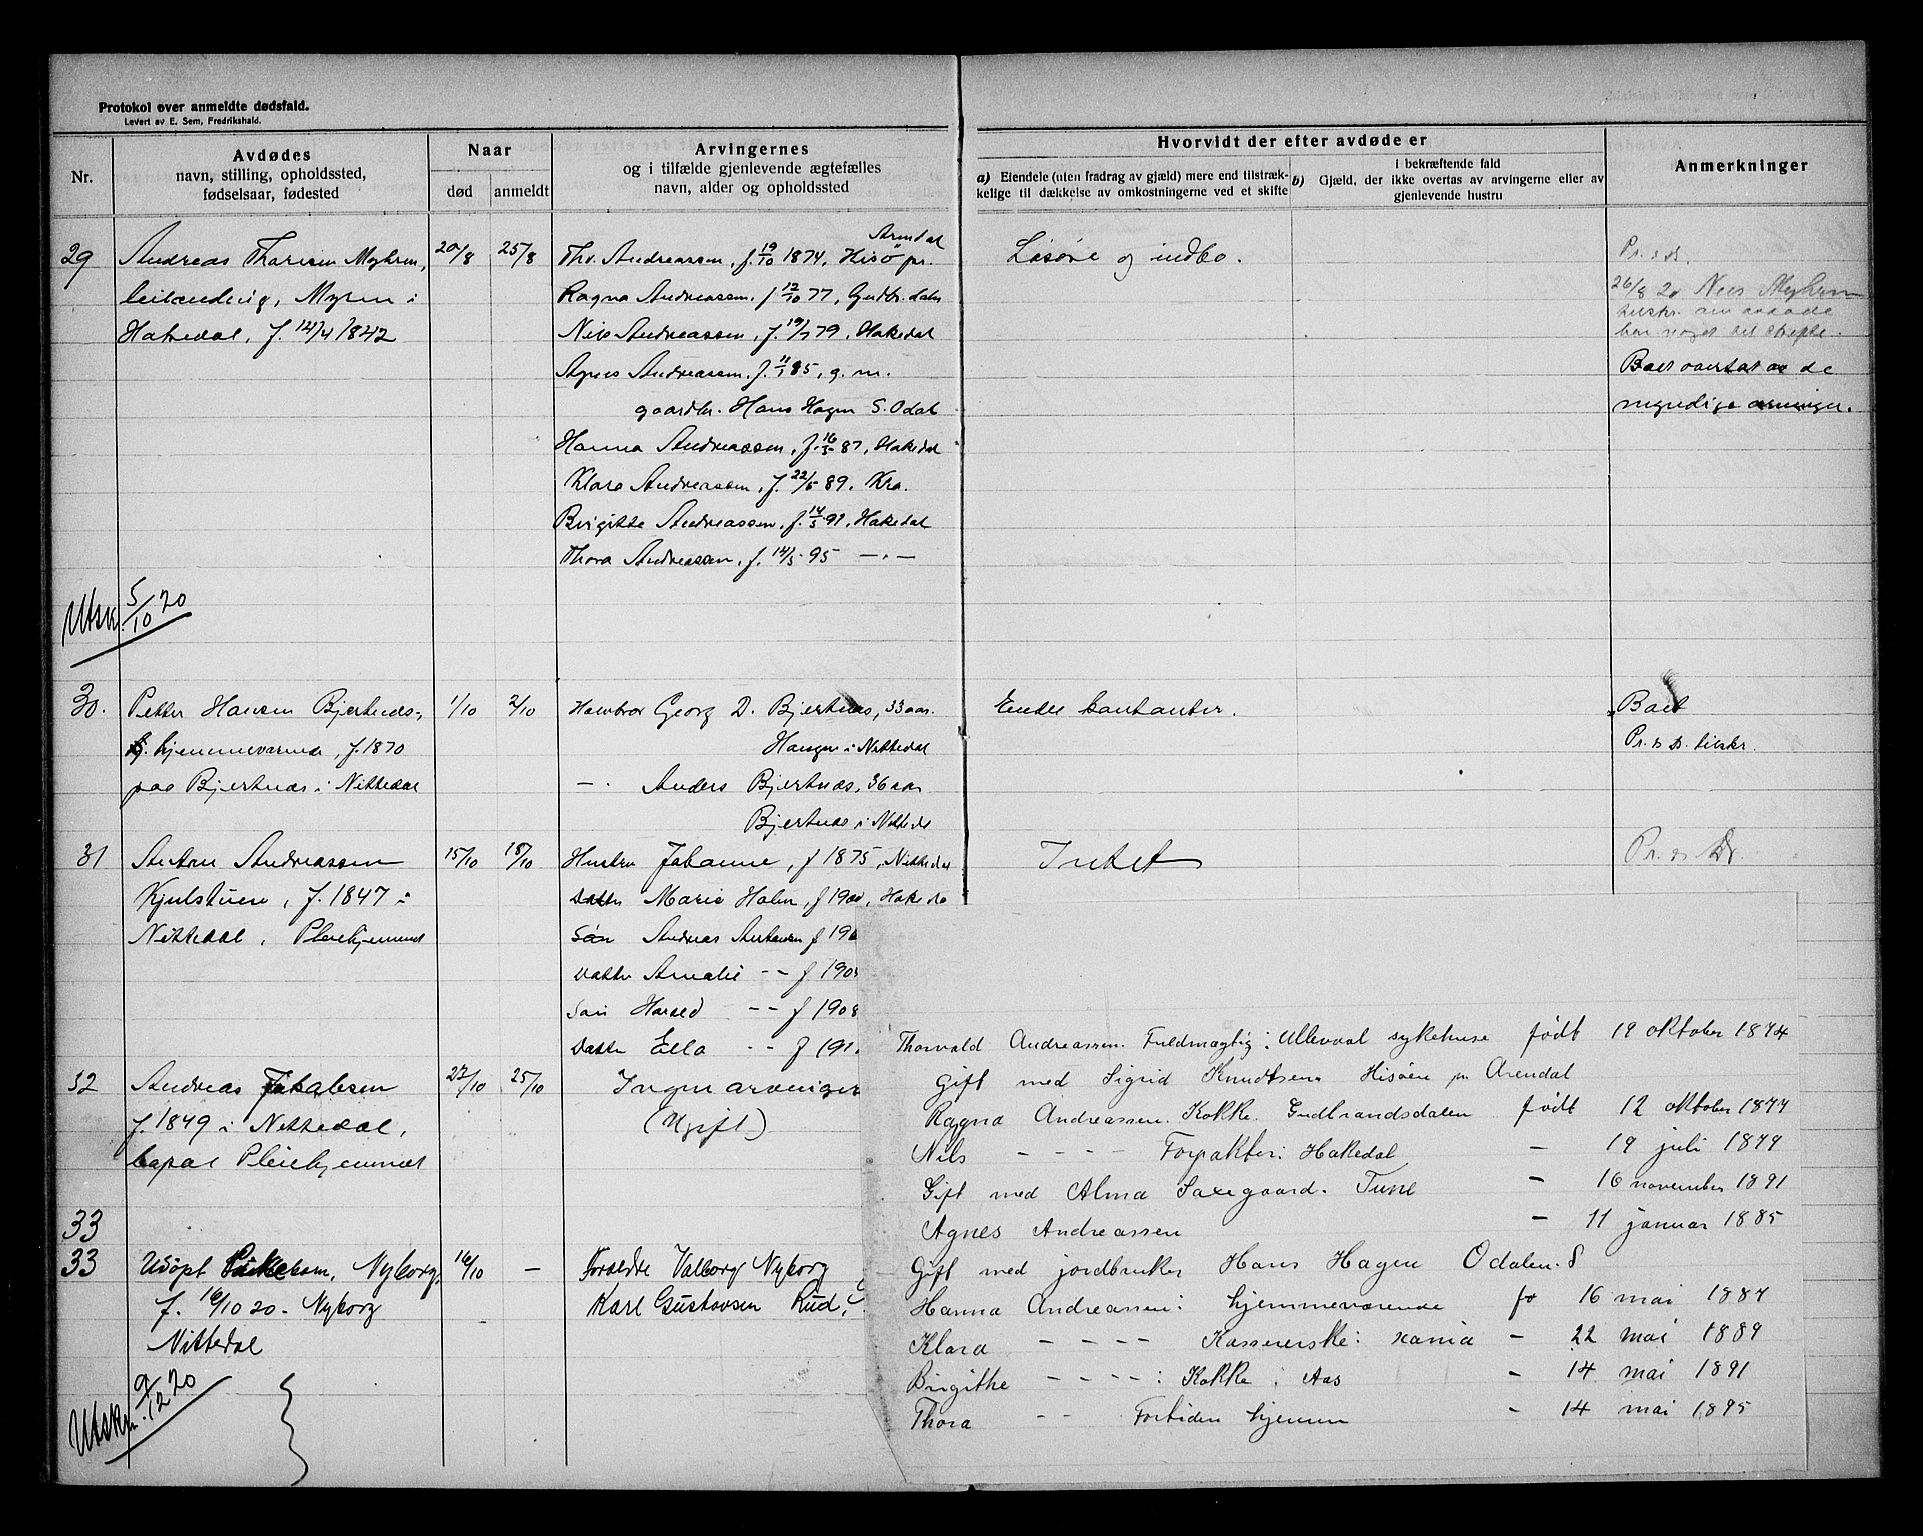 Protokol over anmeldte dødsfald.
Levert av E. Sem, Fredrikshald.
Nr.
Avdødes
navn, stilling, opholdssted,
fødselsaar, fødested
Naar
død
anmeldt
Arvingernes
og i tilfælde gjenlevende ægtefælles
navn, alder og opholdssted
Hvorvidt der efter avdøde er
a) Eiendele (uten fradrag av gjæld) mere end tilstræk-
kelige til dækkelse av omkostningerne ved et skifte
i bekræftende fald
b) Gjæld, der ikke overtas av arvingerne eller av
gjenlevende hustru
Anmerkninger
29
Andreas Thoresen Myhren,
leilænding, Myren i
Hakedal, f. 14/4 1842
20/8
25/8
Arendal
Thv. Andreassen, f. 19/10 1874, Hisö pr.
Ragna Andreassen f 12/10 77, Gudbr.dalen
Nils Andreassen, f. 19/7 79, Hakedal
Agnes Andreassen, f. 11/1 85, g. m.
gaardbr. Hans Hagen S. Odal
Hanna Andreassen, f. 16/5 87, Hakedal
Klara Andreassen, f. 22/5 89, Kra.
Birgitte Andreassen, f. 14/5 91, Hakedal
Thora Andreassen, f. 14/5 95 — " —
Løsøre og indbo.
Pr. s. D.
26/8 20 Nils Myhren
Boet overtat av de
myndige arvinger.
Utskr. 5/10 20
30.
Petter Hansen Bjertnæs,
hjemmeværende, f. 1870
paa Bjertnæs i Nittedal
1/10
2/10
Halvbror Georg D. Bjertnæs, 33 aar.
Haugen i Nittedal
— " Anders Bjertnæs, 36 aar
Bjertnæs i Nittedal
Endel kontanter.
Boet
Pr. s. D. tilskr.
31
Anton Andreassen
Kjulstuen, f. 1847 i
Nittedal, Pleiehjemmet
15/10
18/10
Hustru Johanne, f 1875, Nittedal
Datter Marie Holm, f 1900, Hakedal
Søn Andreas Antonsen f 190
Datter Amalie -- f 190
Søn Harald -- f 1908
Datter Ella -- f 191
Intet
Pr. s. D.
32
Andreas Jakobsen
f. 1849 i Nittedal,
Pleiehjemmet
22/10
25/10
Ingen arvinger
(Ugift)
33
33
Udöpt Pikebarn, Nyborg,
f. 16/10 20 - Nyborg
Nittedal
16/10
—
Foreldre Valborg Nyborg
Karl Gustavsen Rud,
Utskr. 9/12 20
Thorvald Andreassen. Fuldmægtig: Ullevaal sykehuse født 19 oktober 1874
Gift med Sigrid Knudtsen Hisøen pr. Arendal
Ragna Andreassen. Kokke. Gudbrandsdalen født 12 oktober 1877
Nils - - - - Forpakter: Hakedal — 19 juli 1879
Gift med Alma Saxegaard. Tune — 16 november 1891
Agnes Andreassen — 11 januar 1885
Gift med jordbruker Hans Hagen Odalen. S
Hanna Andreassen: hjemmeværende fø 16 mai 1887
Klara - - - - Kassererske: Kania — 22 mai 1889
Birgithe - - - - : Kokke i Aas — 14 mai 1891
Thora - - Fortiden hjemme — 14 mai 1895